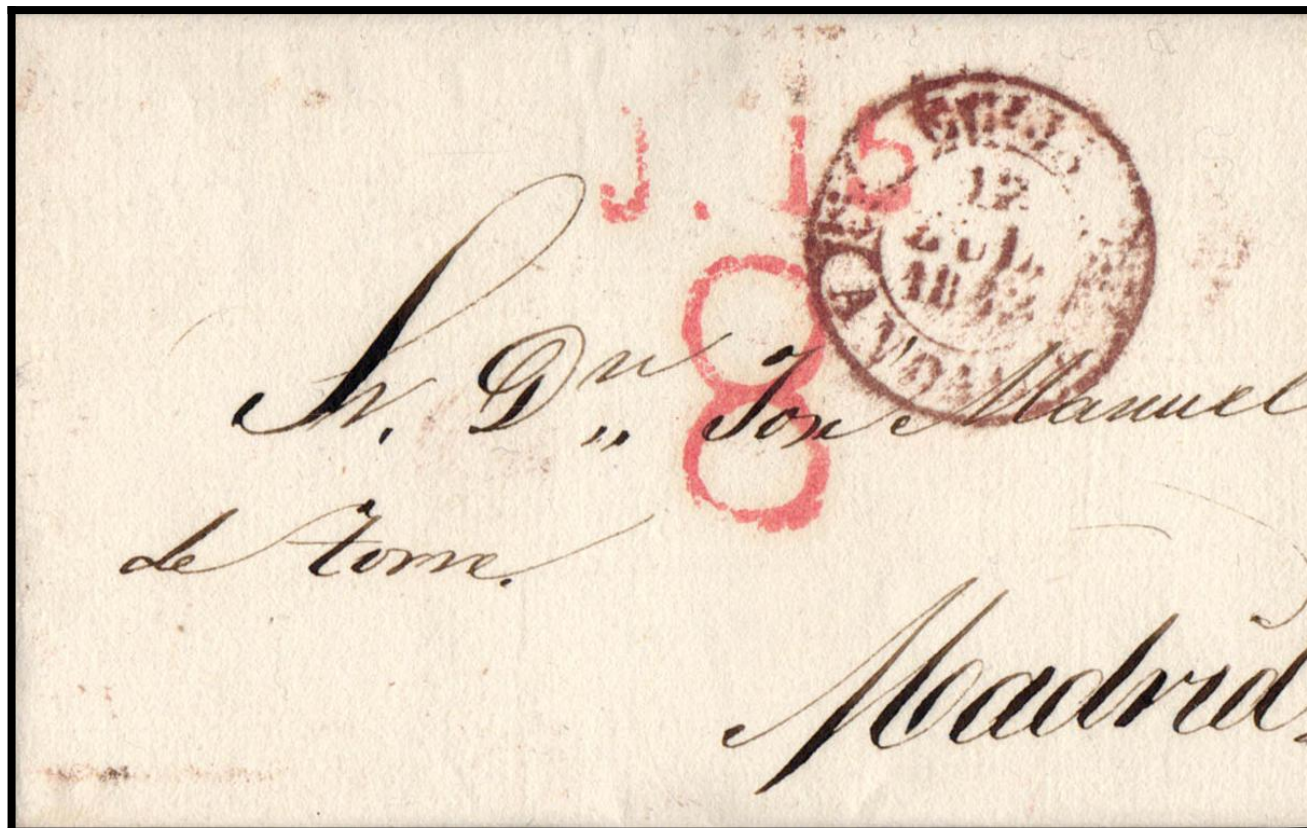 J. 15
12
JUL.
1842
8
Sr. Dn Jose Manuel
de Torre.
Madrid